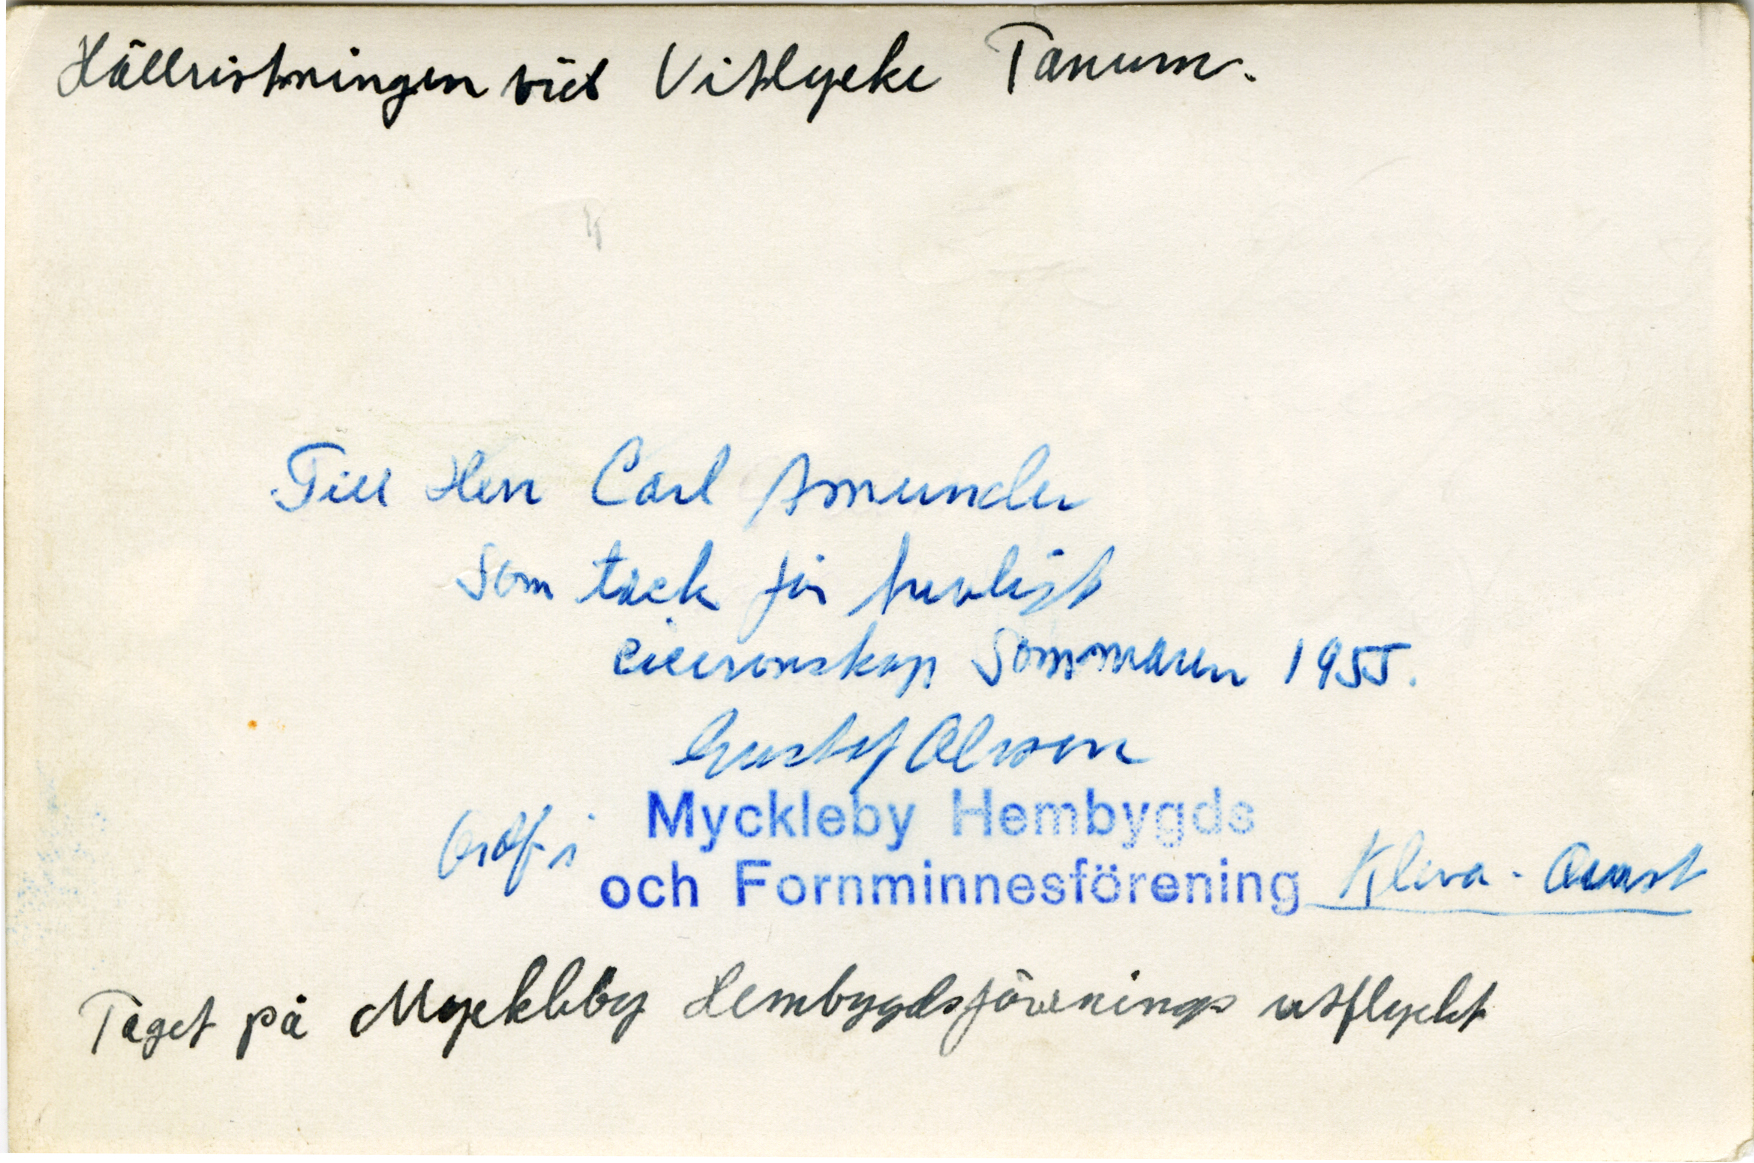 Hällristningen vid Vitlycke Tanum.
Till Herr Carl Amunder
Som tack för trevligt
ciceronskap Sommaren 1955.
Gustaf Olsson
Ordf. i Myckleby Hembygds
och Fornminnesförening Kleva - Orust
Taget på Myckleby Hembygdsförenings utflykt